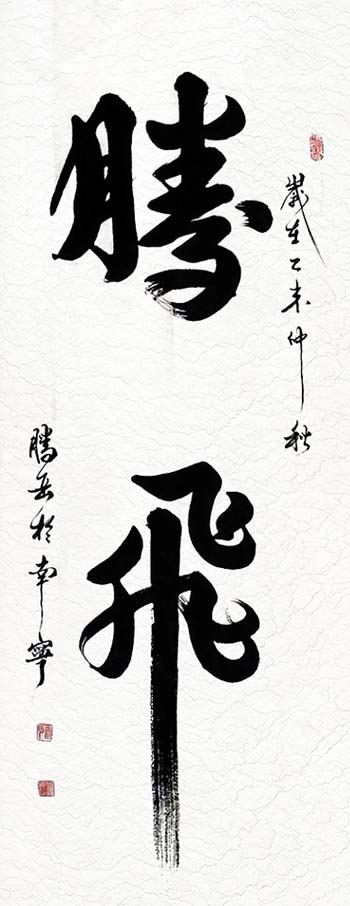 歲在乙未仲秋
騰飛
騰岳於南寧